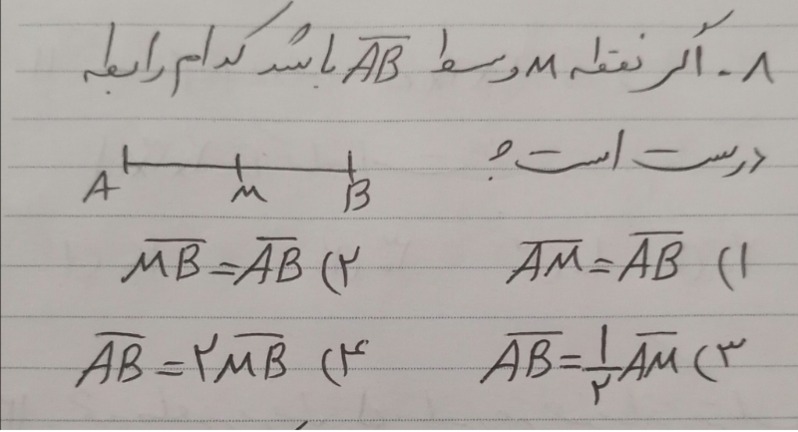 ۸ - اگر نقطه M وسط $\overline{AB}$ باشد کدام رابطه
درست است؟
A M B
۱) $\overline{AM} = \overline{AB}$ ۲) $\overline{MB} = \overline{AB}$
۳) $\overline{AB} = \frac{۱}{۲}\overline{AM}$ ۴) $\overline{AB} = ۲\overline{MB}$